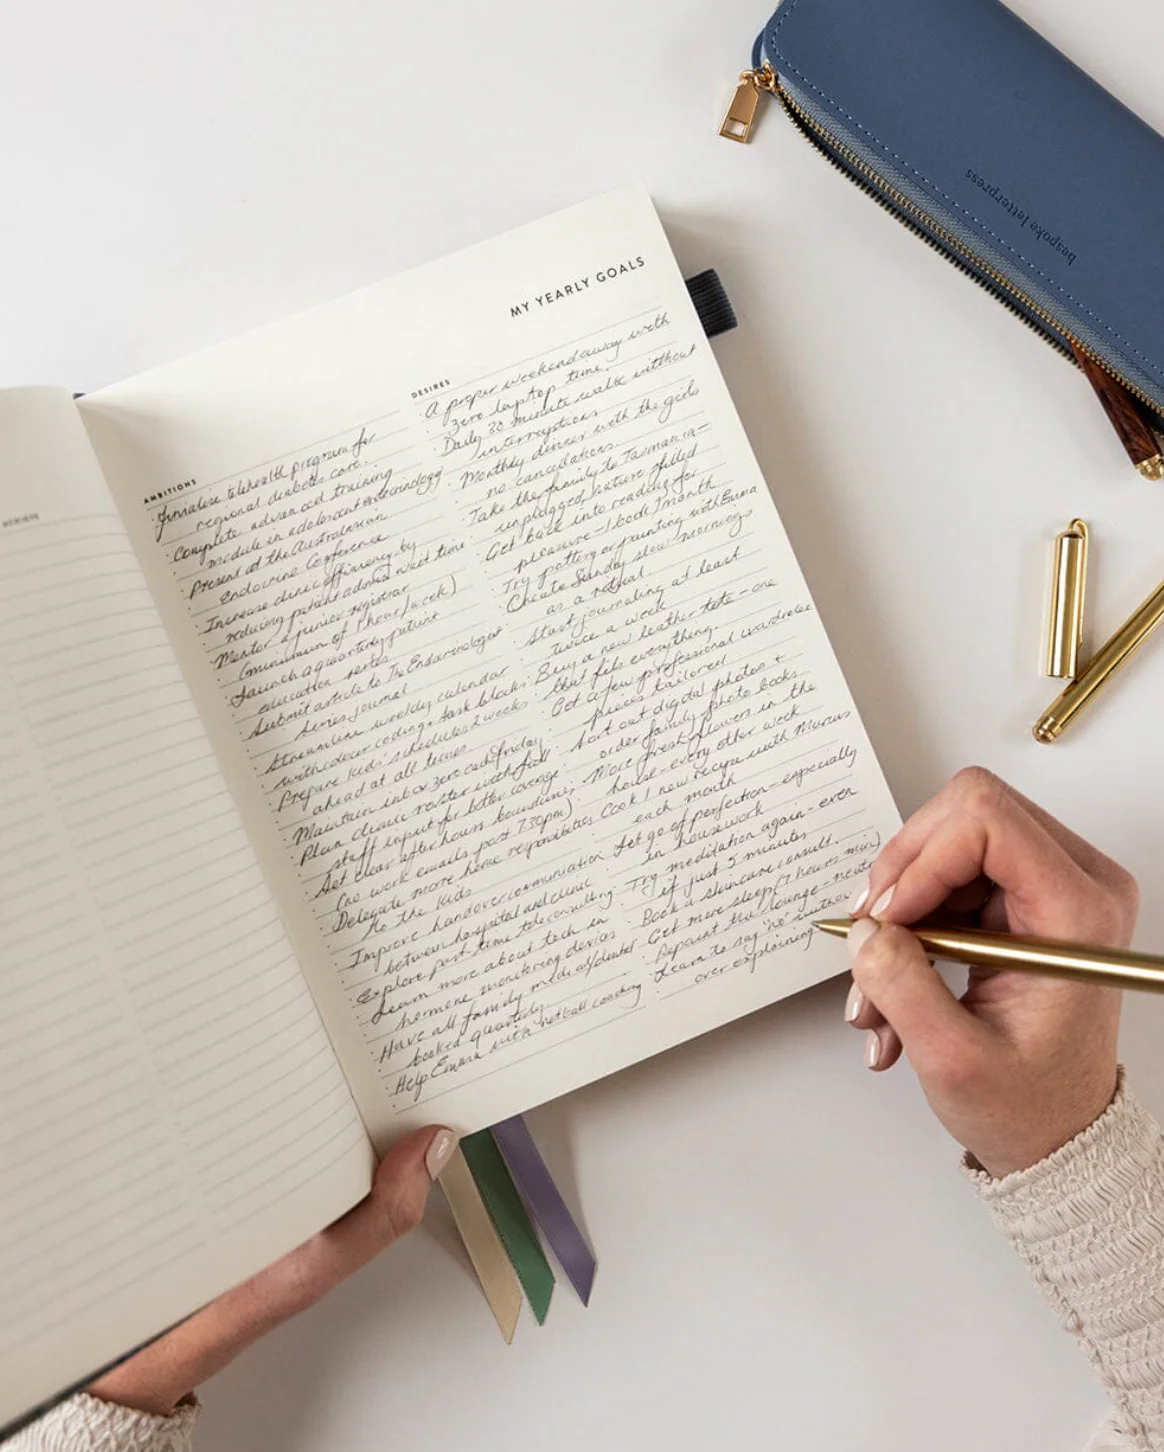 MY YEARLY GOALS
AMBITIONS
Finalise telehealth program for
regional diabetes care.
Complete advanced training
module in adolescent endocrinology
Present at the Australasian
Endocrine Conference
Increase clinic efficiency by
reducing patient admin wait time
Mentor a junior registrar
(minimum of 1 hour/week)
Launch a quarterly patient
education series
Submit article to The Endocrinologist
Series journal
Streamline weekly calendar
with colour coding + task blocks
Prepare kids' schedules 2 weeks
ahead at all times
Maintain inbox zero each friday
Plan clinic roster with full
staff input for better coverage
Set clear after hours boundaries
(no work emails past 730pm)
Delegate more home responsibilities
to the kids
Improve handover communication
between hospital and clinic
Explore part-time teleconsulting
Learn more about tech in
hormone monitoring devices
Have all family medical/dental
booked quarterly
Help Emma with netball coaching
DESIRES
A proper weekend away with
zero laptop time.
Daily 30 minute walk without
interruptions
Monthly dinner with the girls
no cancellations.
Take the family to Tasmania-
unplugged, nature filled
Get back into reading for
pleasure - 1 book/month
Try pottery or painting with Emma
Create Sunday slow mornings
as a ritual
Start journaling at least
twice a week
Buy a new leather tote - one
that fits everything.
Get a few professional wardrobe
pieces tailored
Sort out digital photos +
order family photo books
More fresh flowers in the
house - every other week
Cook 1 new recipe with Marcus
each month
Let go of perfection - especially
in housework
Try meditation again - even
if just 5 minutes
Book a skincare consult.
Get more sleep (7 hours min)
Repaint the lounge -
Learn to say "no" without
over explaining
bespoke letterpress